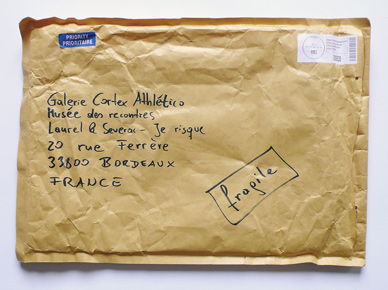 PRIORITY
PRIORITAIRE
Galerie Cortex Athlético
Musée des recontres
Laurel & Severac - Je risque
20 rue Ferrère
33800 BORDEAUX
FRANCE
fragile